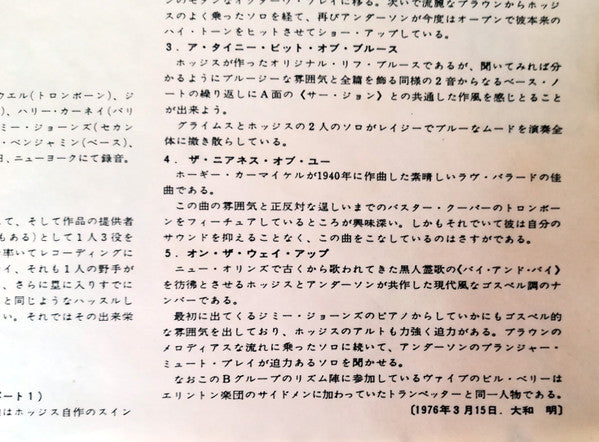 ウエル(トロンボーン)、ジ
)、ハリー・カーネイ(バリ
ミー・ジョーンズ(セカン
・ベンジャミン(ベース)、
日、ニューヨークにて録音。
て、そして作品の提供者
もある)として1人3役を
率いてレコーディングに
イ、それも1人の野手が
、さらに塁に入りすでに
と同じようなハッスルし
い。それではその出来栄
ート1)
はホッジス自作のスイン
のよく乗ったソロを経て、再びアンダーソンが今度はオープンで彼本来の
ハイ・トーンをヒットさせてショー・アップしている。
3．ア・タイニー・ビット・オブ・ブルース
ホッジスが作ったオリジナル・リフ・ブルースであるが、聞いてみれば分
かるようにブルージーな雰囲気と全篇を飾る同様の2音からなるベース・ノ
ートの繰り返しにA面の《サー・ジョン》との共通した作風を感じとること
が出来よう。
グライムスとホッジスの2人のソロがレイジーでブルーなムードを演奏全
体に撒き散らしている。
4．ザ・ニアネス・オブ・ユー
ホーギー・カーマイケルが1940年に作曲した素晴しいラヴ・バラードの佳
曲である。
この曲の雰囲気と正反対な逞しいまでのバスター・クーパーのトロンボー
ンをフィーチュアしているところが興味深い。しかもそれでいて彼は自分の
サウンドを抑えることなく、この曲をこなしているのはさすがである。
5．オン・ザ・ウェイ・アップ
ニュー・オリンズで古くから歌われてきた黒人霊歌の《バイ・アンド・バイ》
を彷彿とさせるホッジスとアンダーソンが共作した現代風なゴスペル調のナ
ンバーである。
最初に出てくるジミー・ジョーンズのピアノからしていかにもゴスペル的
な雰囲気を出しており、ホッジスのアルトも力強く迫力がある。ブラウンの
メロディアスな流れに乗ったソロに続いて、アンダーソンのプランジャー・
ミュート・プレイが迫力あるソロを聞かせる。
なおこのBグループのリズム陣に参加しているヴァイブのビル・ベリーは
エリントン楽団のサイドメンに加わっていたトランペッターと同一人物である。
〔1976年3月15日．大和　明〕